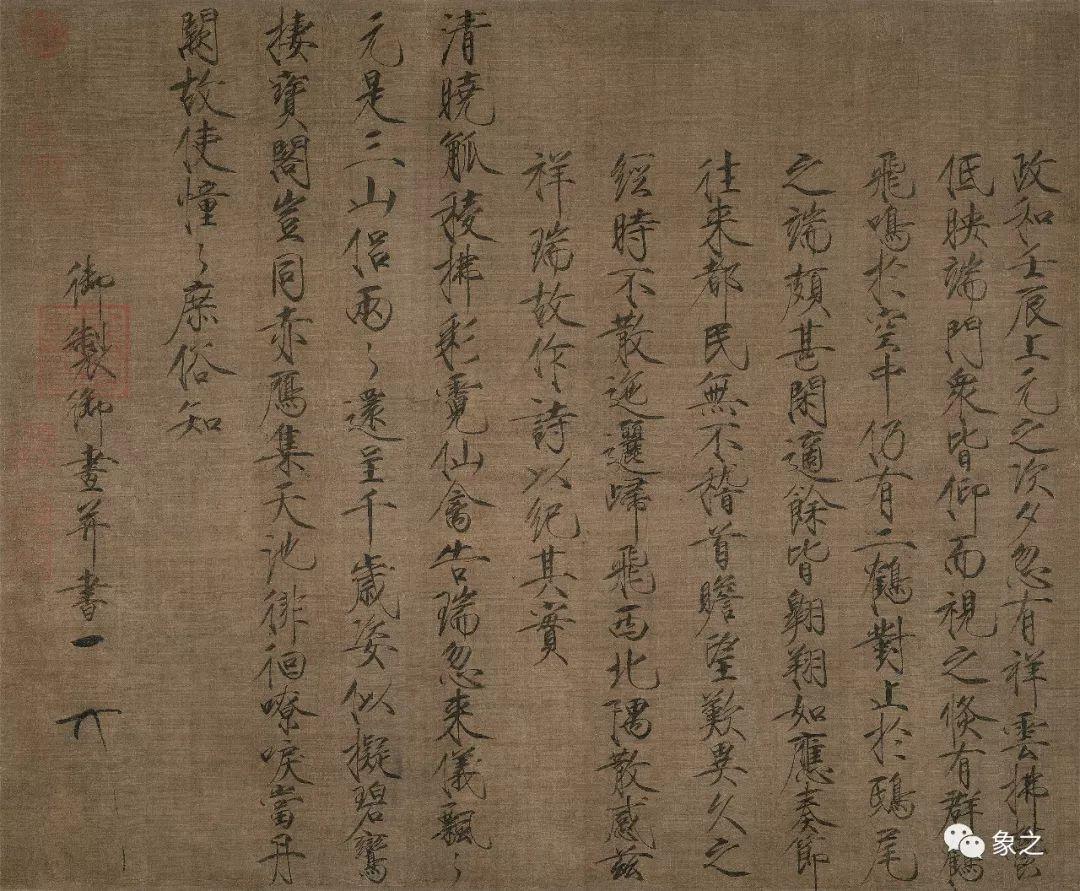 政和壬辰上元之次夕忽有祥雲拂鬱
低映端門衆皆仰而視之倐有群鶴
飛鳴於空中仍有二鶴對止於鴟尾
之端頗甚閑適餘皆翱翔如應奏節
往來都民無不稽首瞻望歎異久之
經時不散迤邐歸飛西北隅散感兹
祥瑞故作詩以紀其實
清曉觚稜拂彩霓仙禽告瑞忽來儀飄〻
元是三山侣兩〻還呈千歲姿似擬碧鸞
棲寶閣豈同赤鴈集天池徘徊嘹唳當丹
闕故使憧〻庶俗知
御製御畫并書
象之